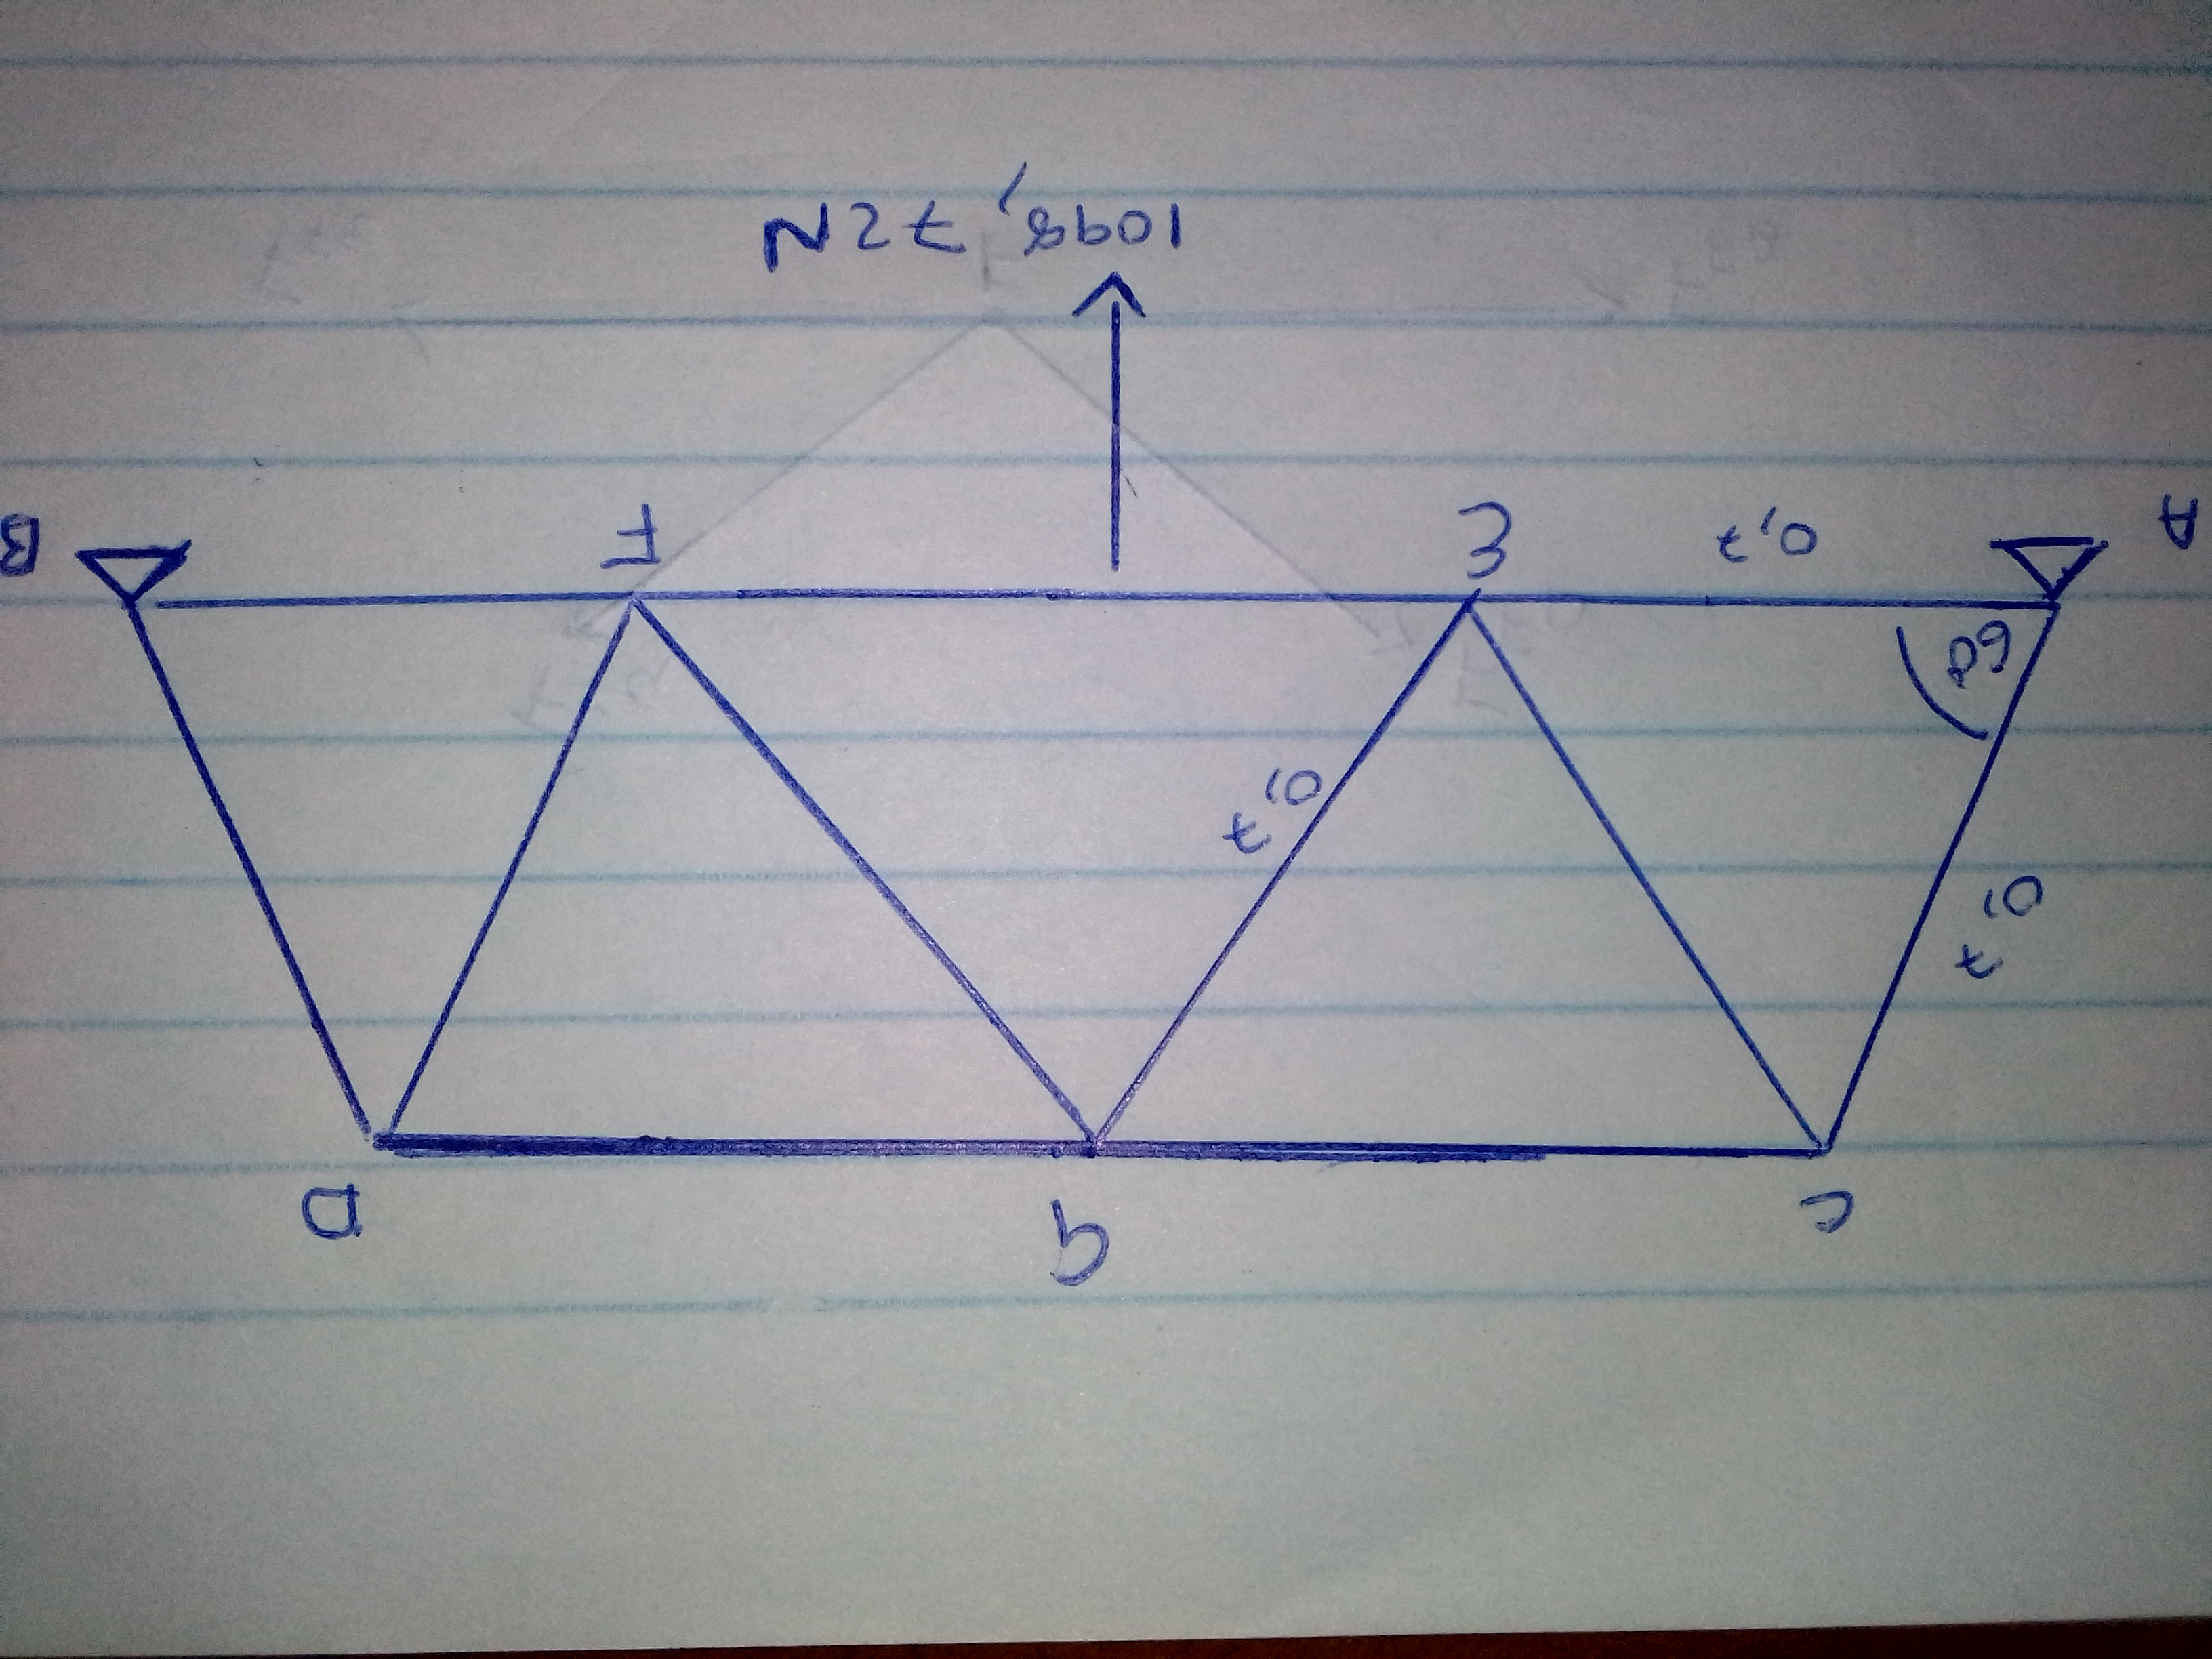 C
G
D
0,7
0,7
60°
A
0,7
E
F
B
1098,72N